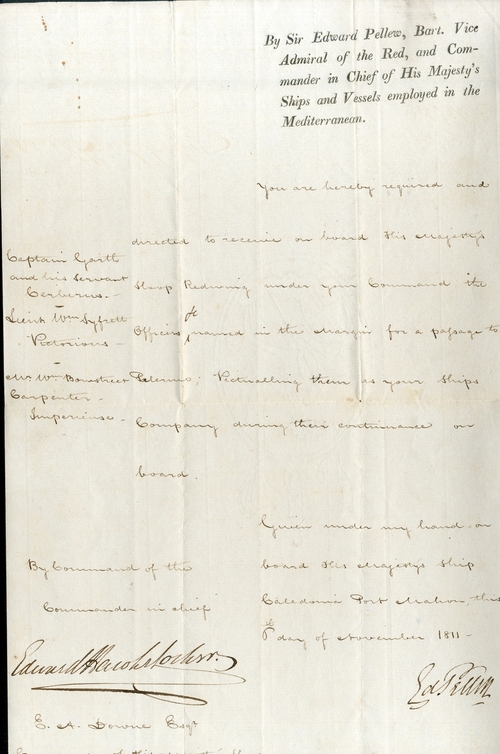 By Sir Edward Pellew, Bart. Vice
Admiral of the Red, and Com-
mander in Chief of His Majesty's
Ships and Vessels employed in the
Mediterranean.
You are hereby required and
directed to receive on board His Majesty's
Sloop Redwing under your Command the
Officers named in the Margin for a passage to
Palermo; Victualling them as your Ships
Company during their continuance on
board.
Captain Garth
and his Servant
Cerberus.-
Lieut Wm
Victorious -
Mr. Wm. Bowstreet
Carpenter -
Imperieuse -
Given under my hand on
board His Majesty's Ship
Caledonia Port Mahon, this
6th day of November 1811 -
Ed Pellew
By Command of the
Commander in chief
Edward
E. A. Downe Esqr